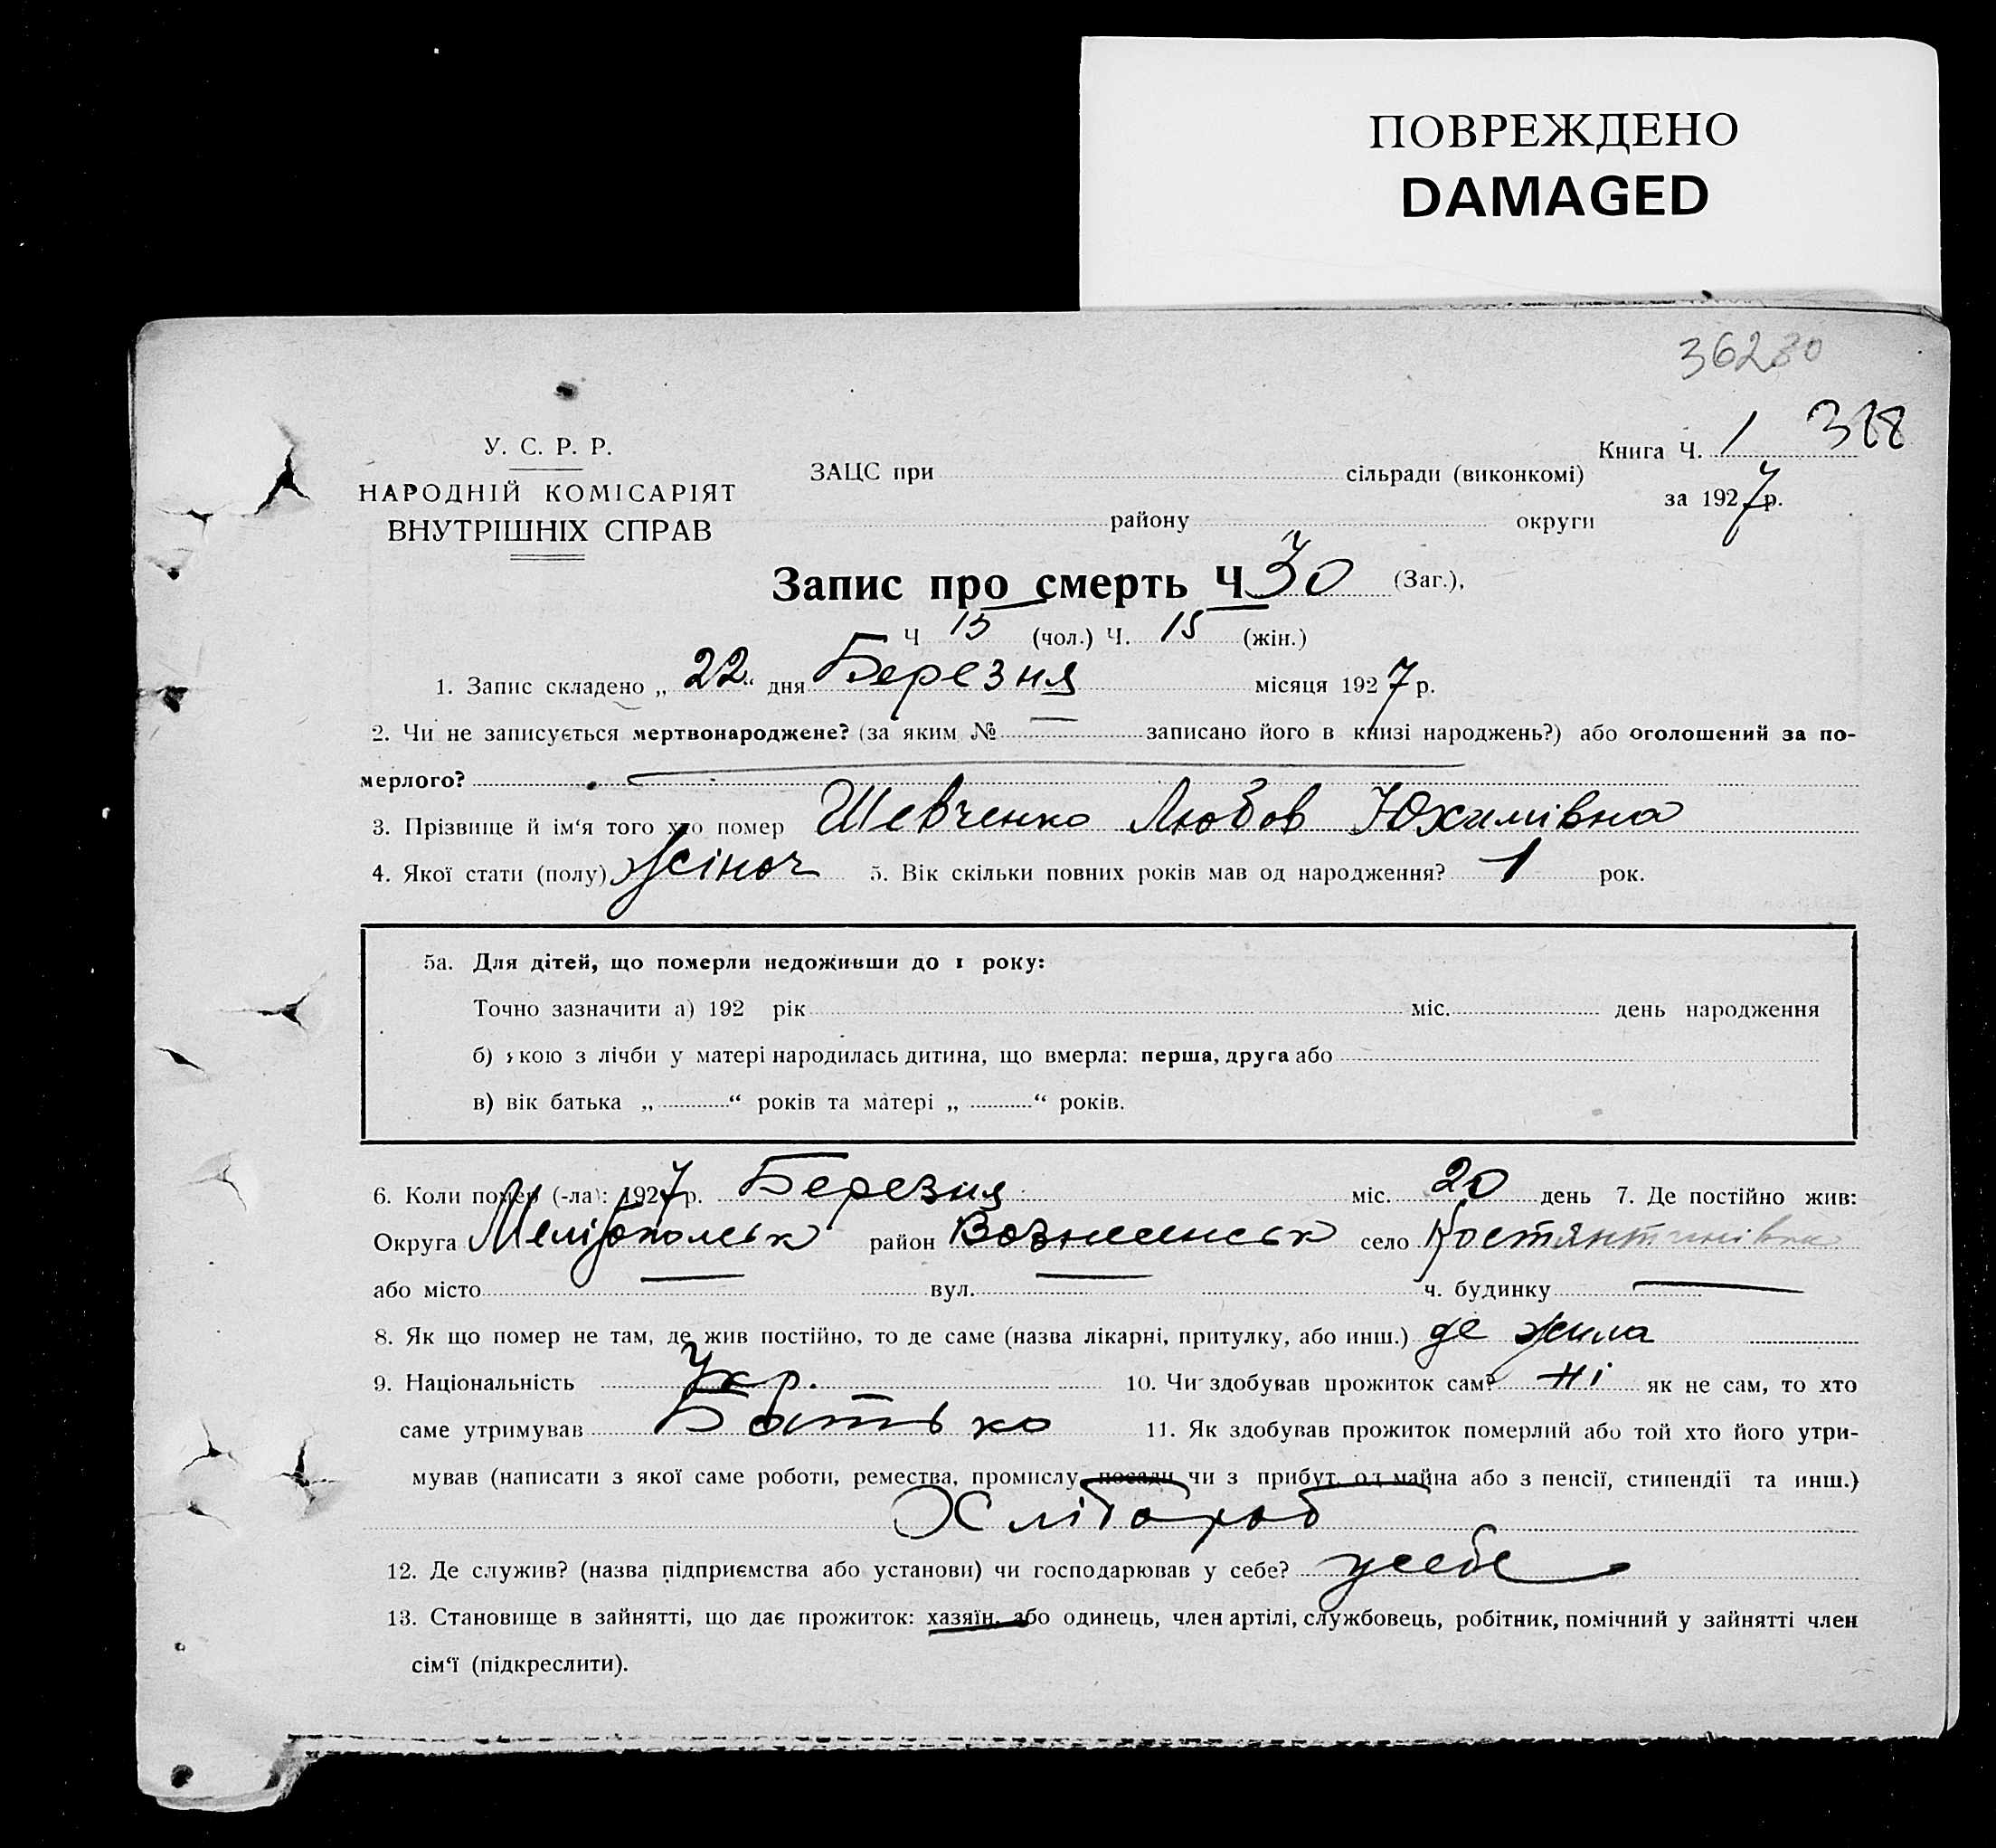 ПОВРЕЖДЕНО
DAMAGED
36230
Книга Ч. 1 318
У. С. Р. Р.
НАРОДНІЙ КОМІСАРІЯТ
ВНУТРІШНІХ СПРАВ
ЗАЦС при сільради (виконкомі)
за 1927 р.
району округи
Запис про смерть Ч 30 (Заг.),
Ч 15 (чол.) Ч. 15 (жін.)
1. Запис складено „ 22 “ дня Березня місяця 1927 р.
2. Чи не записується мертвонароджене? (за яким № — записано його в книзі народжень?) або оголошений за по-
мерлого?
3. Прізвище й ім‘я того хто помер Шевченко Любов Юхимівна
4. Якої стати (полу) жіноч 5. Вік скільки повних років мав од народження? 1 рок.
5а. Для дітей, що померли недоживши до 1 року:
Точно зазначити а) 192 рік міс. день народження
б) якою з лічби у матері народилась дитина, що вмерла: перша, друга або
в) вік батька „ “ років та матері „ “ років.
6. Коли помер (-ла): 1927 р. Березня міс. 20 день 7. Де постійно жив:
Округа Мелітопольськ район Вознесенськ село Костянтинівка
або місто — вул. — ч. будинку —
8. Як що помер не там, де жив постійно, то де саме (назва лікарні, притулку, або инш.) де жила
9. Національність Укр. 10. Чи здобував прожиток сам? Ні як не сам, то хто
саме утримував Батько 11. Як здобував прожиток померлий або той хто його утри-
мував (написати з якої саме роботи, ремества, промислу, посади чи з прибут. од майна або з пенсії, стипендії та инш.)
Хлібороб
12. Де служив? (назва підприємства або установи) чи господарював у себе? усебе
13. Становище в зайнятті, що дає прожиток: хазяїн, або одинець, член артілі, службовець, робітник, помічний у зайнятті член
сім‘ї (підкреслити).